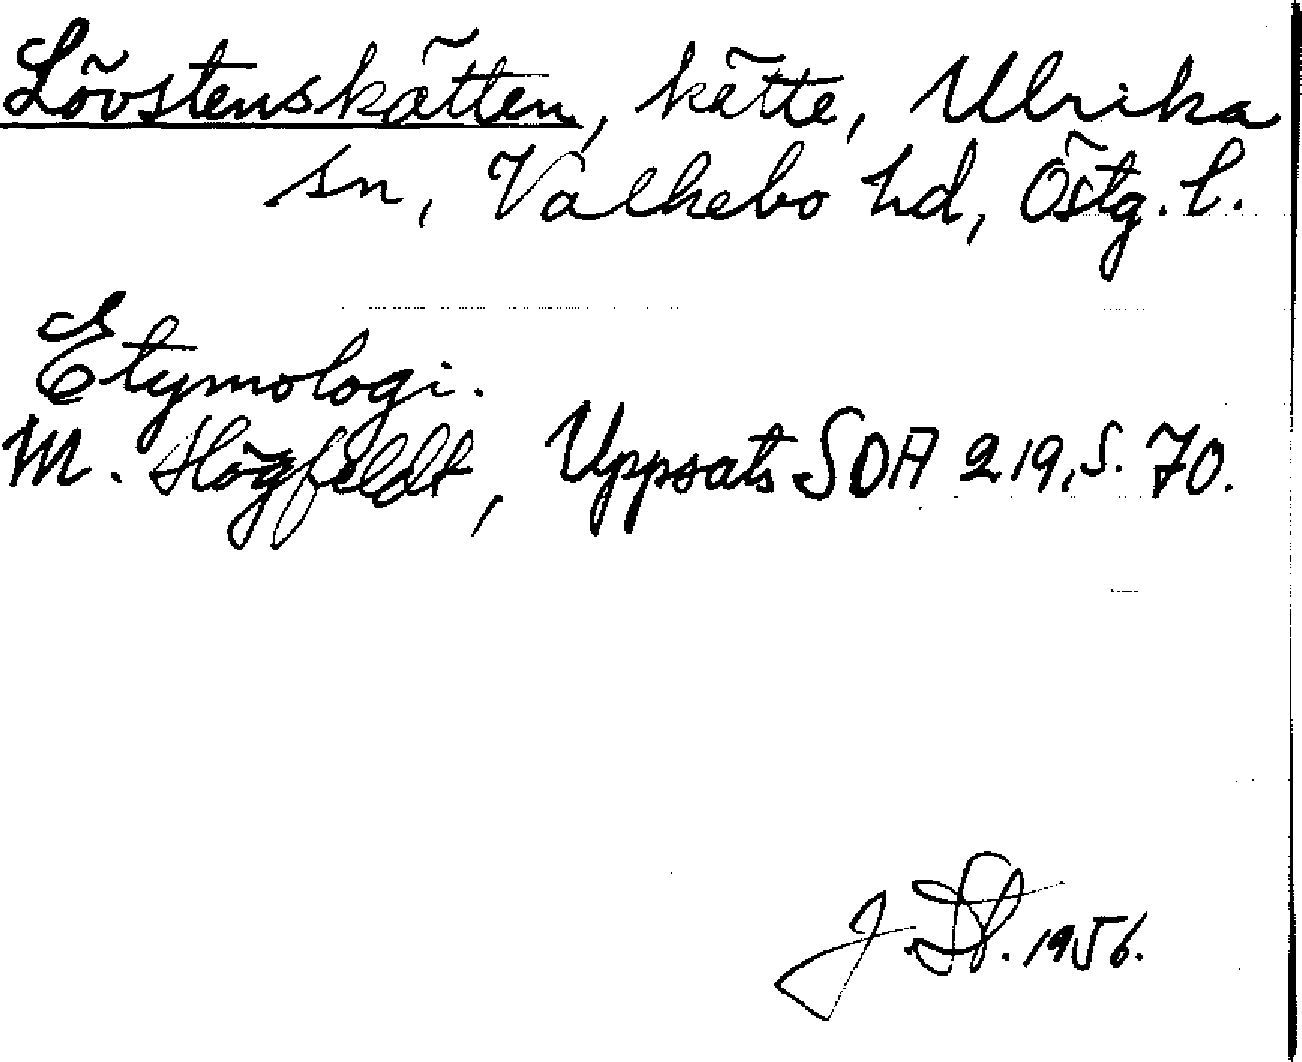 Lövstenskätten, kätte, Ulrika
sn, Valkebo hd, Östg. l.
Etymologi.
M. Högfeldt, Uppsats SOA 219, s. 70.
J. St. 1956.